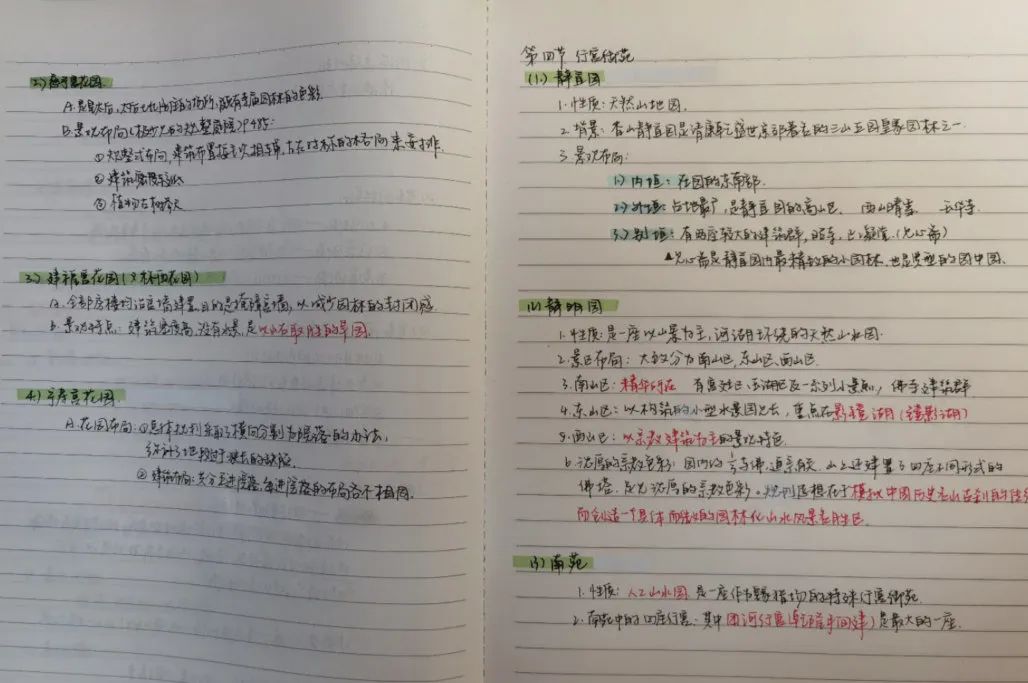 2) 慈宁宫花园
A. 是皇太后、太后太妃的场所,故有寺庙园林的色彩
B. 景观布局(格外凡的规整庭院)P485:
① 规整式布局,建筑布置按主次相辅、左右对称的格局来安排
② 建筑密度较低
③ 植物古树参天
3) 建福宫花园(又称西花园)
a. 全部房楼均沿宫墙建置,目的是掩障宫墙,以减少园林的封闭感
b. 景观特点:建筑密度高,没有水景,是以山石取胜的旱园
4) 宁寿宫花园
A. 花园布局:①总体规划采取了横向分割为院落的办法,
弥补了地段过于狭长的缺陷
② 建筑布局:共分五进院落,每进院落的布局各不相同
第四节 行宫御苑
(1) 静宜园
1. 性质:天然山地园
2. 背景:香山静宜园是清康乾盛世京郊著名的三山五园皇家园林之一
3. 景观布局:
1) 内垣:在园的东南部
2) 外垣:占地最广,是静宜园的高山区 西山晴雪 玉华寺
3) 别垣:有两座较大的建筑群,昭寺、正凝堂(见心斋)
▲见心斋是静宜园内最精致的小园林,也是典型的园中园
(2) 静明园
1. 性质:是一座以山景为主,河湖环绕的天然山水园
2. 景区布局:大致分为南山区、东山区、西山区
3. 南山区:精华所在 有宫廷区、玉湖区及一系列小景点,佛寺建筑群
4. 东山区:以构筑的小型水景园为主,重点在影镜湖(镜影湖)
5. 西山区:以宗教建筑为主的景观特色
6. 浓厚的宗教色彩:园内约 与佛、道亲有关,山上还建置了四座不同形式的
佛塔,足见浓厚的宗教色彩。规则思想在于模拟中国历史名山古刹的传统
而创造一个具体而微的园林化山水风景名胜区
(3) 南苑
1. 性质:人工山水园 是一座作为豢猎场的特殊行宫御苑
2. 南苑中的四座行宫,其中团河行宫(乾隆年间建)是最大的一座